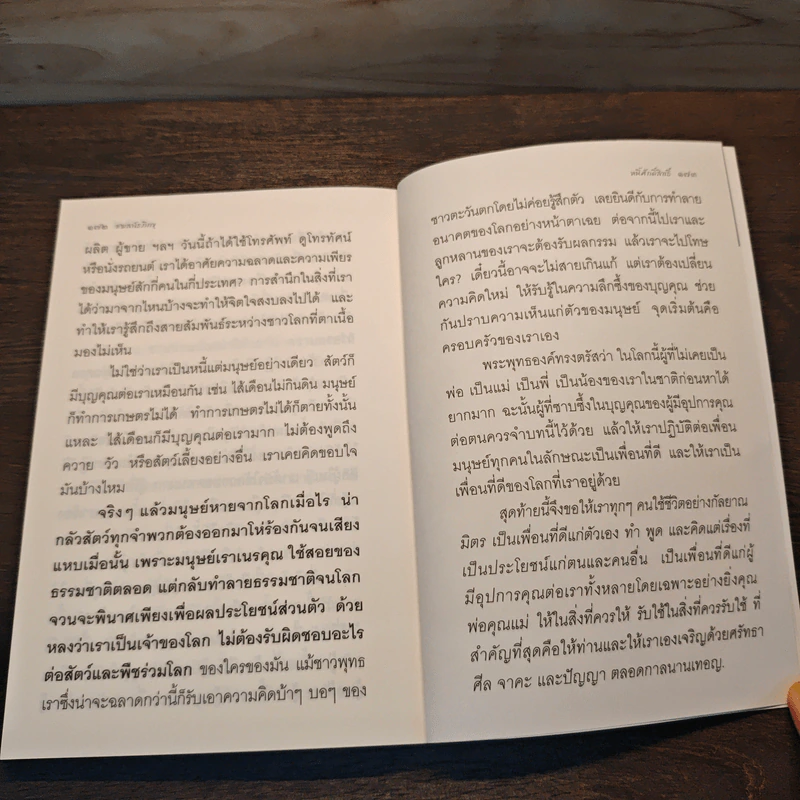 ๑๗๒
ผลิต ผู้ขาย ฯลฯ วันนี้ถ้าได้ใช้โทรศัพท์ ดูโทรทัศน์
หรือนั่งรถยนต์ เราได้อาศัยความฉลาดและความเพียร
ของมนุษย์สักกี่คนในกี่ประเทศ? การสำนึกในสิ่งที่เรา
ได้ว่ามาจากไหนบ้างจะทำให้จิตใจสงบลงไปได้ และ
ทำให้เรารู้สึกถึงสายสัมพันธ์ระหว่างชาวโลกที่ตาเนื้อ
มองไม่เห็น
ไม่ใช่ว่าเราเป็นหนี้แต่มนุษย์อย่างเดียว สัตว์ก็
มีบุญคุณต่อเราเหมือนกัน เช่น ไส้เดือนไม่กินดิน มนุษย์
ก็ทำการเกษตรไม่ได้ ทำการเกษตรไม่ได้ก็ตายทั้งนั้น
แหละ ไส้เดือนก็มีบุญคุณต่อเรามาก ไม่ต้องพูดถึง
ควาย วัว หรือสัตว์เลี้ยงอย่างอื่น เราเคยคิดขอบใจ
มันบ้างไหม
จริงๆ แล้วมนุษย์หายจากโลกเมื่อไร น่า
กลัวสัตว์ทุกจำพวกต้องออกมาโห่ร้องกันจนเสียง
แหบเมื่อนั้น เพราะมนุษย์เราเนรคุณ ใช้สอยของ
ธรรมชาติตลอด แต่กลับทำลายธรรมชาติจนโลก
จวนจะพินาศเพียงเพื่อผลประโยชน์ส่วนตัว ด้วย
หลงว่าเราเป็นเจ้าของโลก ไม่ต้องรับผิดชอบอะไร
ต่อสัตว์และพืชร่วมโลก ของใครของมัน แม้ชาวพุทธ
เราซึ่งน่าจะฉลาดกว่านี้ก็รับเอาความคิดบ้าๆ บอๆ ของ
หนี้ศักดิ์สิทธิ์ ๑๗๓
ชาวตะวันตกโดยไม่ค่อยรู้สึกตัว เลยยินดีกับการทำลาย
อนาคตของโลกอย่างหน้าตาเฉย ต่อจากนี้ไปเราและ
ลูกหลานของเราจะต้องรับผลกรรม แล้วเราจะไปโทษ
ใคร? เดี๋ยวนี้อาจจะไม่สายเกินแก้ แต่เราต้องเปลี่ยน
ความคิดใหม่ ให้รับรู้ในความลึกซึ้งของบุญคุณ ช่วย
กันปราบความเห็นแก่ตัวของมนุษย์ จุดเริ่มต้นคือ
ครอบครัวของเราเอง
พระพุทธองค์ทรงตรัสว่า ในโลกนี้ผู้ที่ไม่เคยเป็น
พ่อ เป็นแม่ เป็นพี่ เป็นน้องของเราในชาติก่อนหาได้
ยากมาก ฉะนั้นผู้ที่ซาบซึ้งในบุญคุณของผู้มีอุปการคุณ
ต่อตนควรจำบทนี้ไว้ด้วย แล้วให้เราปฏิบัติต่อเพื่อน
มนุษย์ทุกคนในลักษณะเป็นเพื่อนที่ดี และให้เราเป็น
เพื่อนที่ดีของโลกที่เราอยู่ด้วย
สุดท้ายนี้จึงขอให้เราทุกๆ คนใช้ชีวิตอย่างกัลยาณ
มิตร เป็นเพื่อนที่ดีแก่ตัวเอง ทำ พูด และคิดแต่เรื่องที่
เป็นประโยชน์แก่ตนและคนอื่น เป็นเพื่อนที่ดีแก่ผู้
มีอุปการคุณต่อเราทั้งหลายโดยเฉพาะอย่างยิ่งคุณ
พ่อคุณแม่ ให้ในสิ่งที่ควรให้ รับใช้ในสิ่งที่ควรรับใช้ ที่
สำคัญที่สุดคือให้ท่านและให้เราเองเจริญด้วยศรัทธา
ศีล จาคะ และปัญญา ตลอดกาลนานเทอญ.